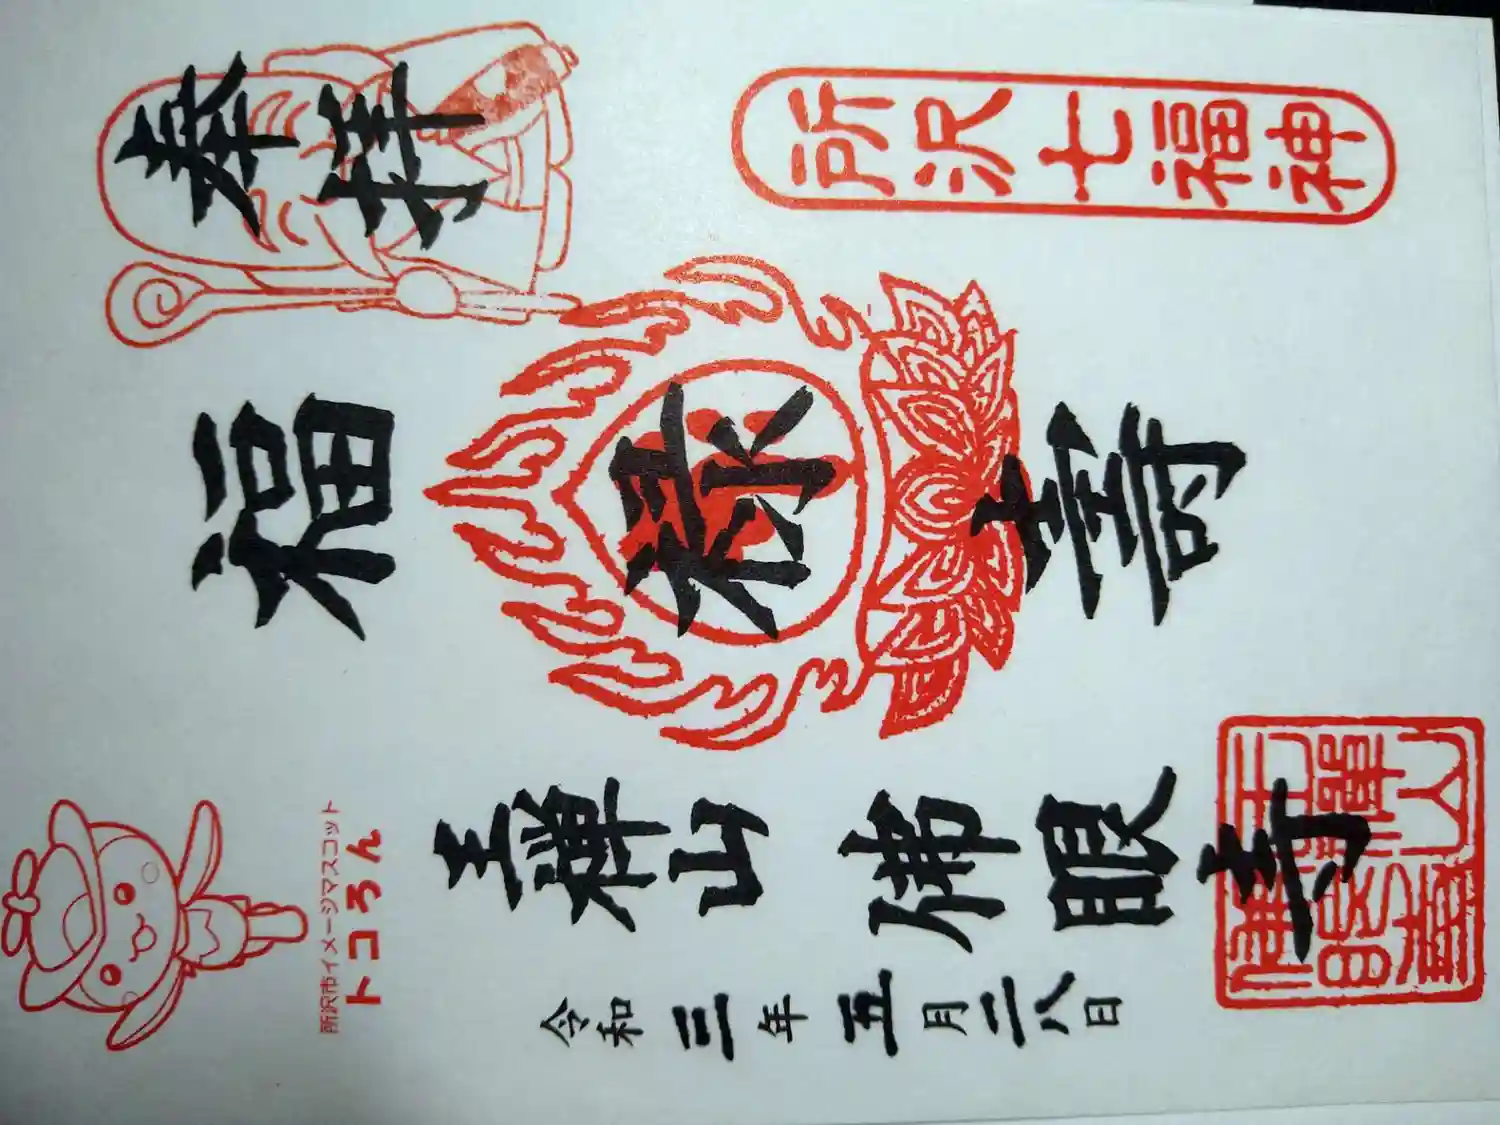 奉拝
所沢七福神
福禄壽
王禅山
佛眼寺
王禪山
佛眼寺
令和三年五月二八日
所沢市イメージマスコット
トコろん